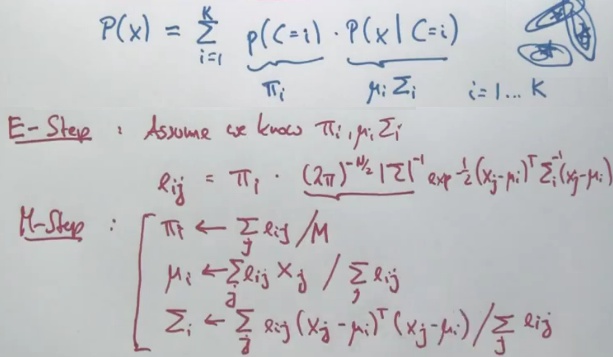 P(x) = Σ_{i=1}^{K} p(C=i) · P(x|C=i)
π_i   μ_i Σ_i   i=1...K
E-Step : Assume we know π_i, μ_i Σ_i
e_ij = π_i · (2π)^{-N/2} |Σ|^{-1} exp -½ (x_j-μ_i)^T Σ_i^{-1} (x_j-μ_i)
M-Step : π_i ← Σ_j e_ij / M
μ_i ← Σ_j e_ij x_j / Σ_j e_ij
Σ_i ← Σ_j e_ij (x_j-μ_i)^T (x_j-μ_i) / Σ_j e_ij